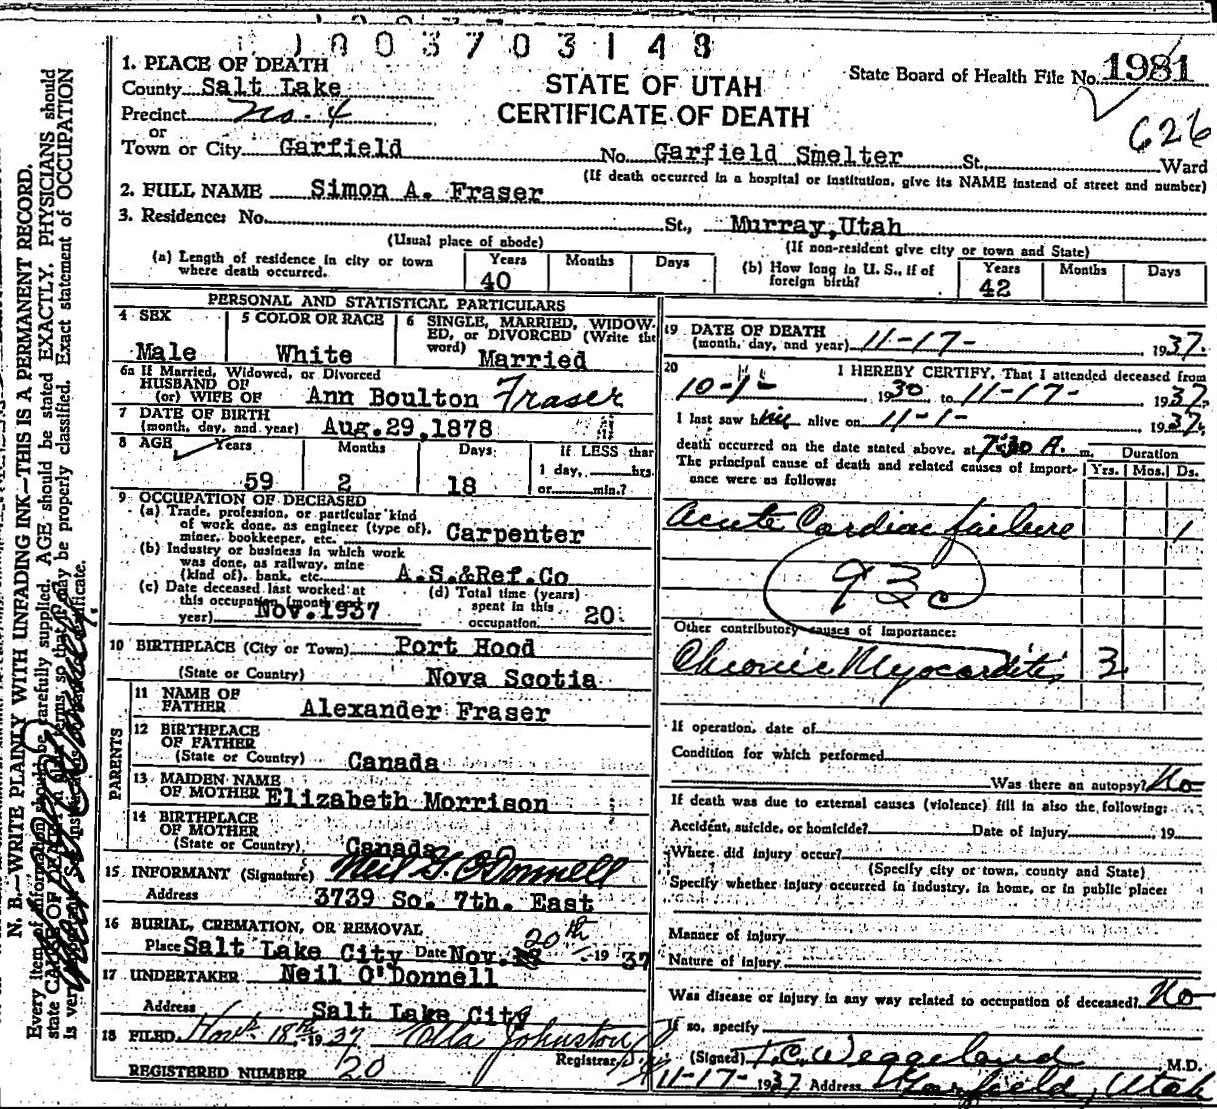 1003703148
1. PLACE OF DEATH
County Salt Lake
Precinct No. 4
or
Town or City Garfield
STATE OF UTAH
CERTIFICATE OF DEATH
State Board of Health File No. 1981
626
No. Garfield Smelter St. Ward
(If death occurred in a hospital or institution, give its NAME instead of street and number)
2. FULL NAME Simon A. Fraser
3. Residence: No. St., Murray, Utah
(Usual place of abode)
(If non-resident give city or town and State)
(a) Length of residence in city or town where death occurred.
Years 40 Months Days
(b) How long in U. S., if of foreign birth?
Years 42 Months Days
PERSONAL AND STATISTICAL PARTICULARS
4 SEX
Male
5 COLOR OR RACE
White
6 SINGLE, MARRIED, WIDOWED, or DIVORCED (Write the word)
Married
6a If Married, Widowed, or Divorced
HUSBAND OF
(or) WIFE OF Ann Boulton Fraser
7 DATE OF BIRTH
(month, day, and year) Aug. 29, 1878
8 AGE Years Months Days If LESS than
1 day, hrs.
or min.?
59 2 18
9 OCCUPATION OF DECEASED
(a) Trade, profession, or particular kind
of work done, as engineer (type of),
miner, bookkeeper, etc. Carpenter
(b) Industry or business in which work
was done, as railway, mine
(kind of), bank, etc. A.S.&Ref.Co
(c) Date deceased last worked at
this occupation (month and
year) Nov. 1937
(d) Total time (years)
spent in this
occupation 20
10 BIRTHPLACE (City or Town) Port Hood
(State or Country) Nova Scotia
PARENTS
11 NAME OF
FATHER Alexander Fraser
12 BIRTHPLACE
OF FATHER
(State or Country) Canada
13 MAIDEN NAME
OF MOTHER Elizabeth Morrison
14 BIRTHPLACE
OF MOTHER
(State or Country) Canada
15 INFORMANT (Signature) Neil G. O'Donnell
Address 3739 So. 7th. East
16 BURIAL, CREMATION, OR REMOVAL
Place Salt Lake City Date Nov. 20th 1937
17 UNDERTAKER Neil O'Donnell
Address Salt Lake City
18 FILED. Nov. 18th 1937 Ella Johnston
Registrar
REGISTERED NUMBER 20
19 DATE OF DEATH
(month, day, and year) 11-17- , 1937.
20 I HEREBY CERTIFY, That I attended deceased from
10-1- , 1930 to 11-17- 1937.
I last saw him alive on 11-1- 1937.
death occurred on the date stated above, at 7:30 A. m.
The principal cause of death and related causes of importance were as follows:
Duration
Yrs. Mos. Ds.
Acute Cardiac failure 1
93c
Other contributory causes of importance:
Chronic Myocarditis 3
If operation, date of
Condition for which performed
Was there an autopsy? No
If death was due to external causes (violence) fill in also the following:
Accident, suicide, or homicide? Date of injury 19
Where did injury occur?
(Specify city or town, county and State)
Specify whether injury occurred in industry, in home, or in public place:
Manner of injury
Nature of injury
Was disease or injury in any way related to occupation of deceased? No
If so, specify
(Signed) T. C. Weggeland M.D.
11-17- 1937 Address Garfield, Utah
N. B.—WRITE PLAINLY WITH UNFADING INK—THIS IS A PERMANENT RECORD.
Every item of information should be carefully supplied. AGE should be stated EXACTLY. PHYSICIANS should
state CAUSE OF DEATH in plain terms, so that it may be properly classified. Exact statement of OCCUPATION
is very important.